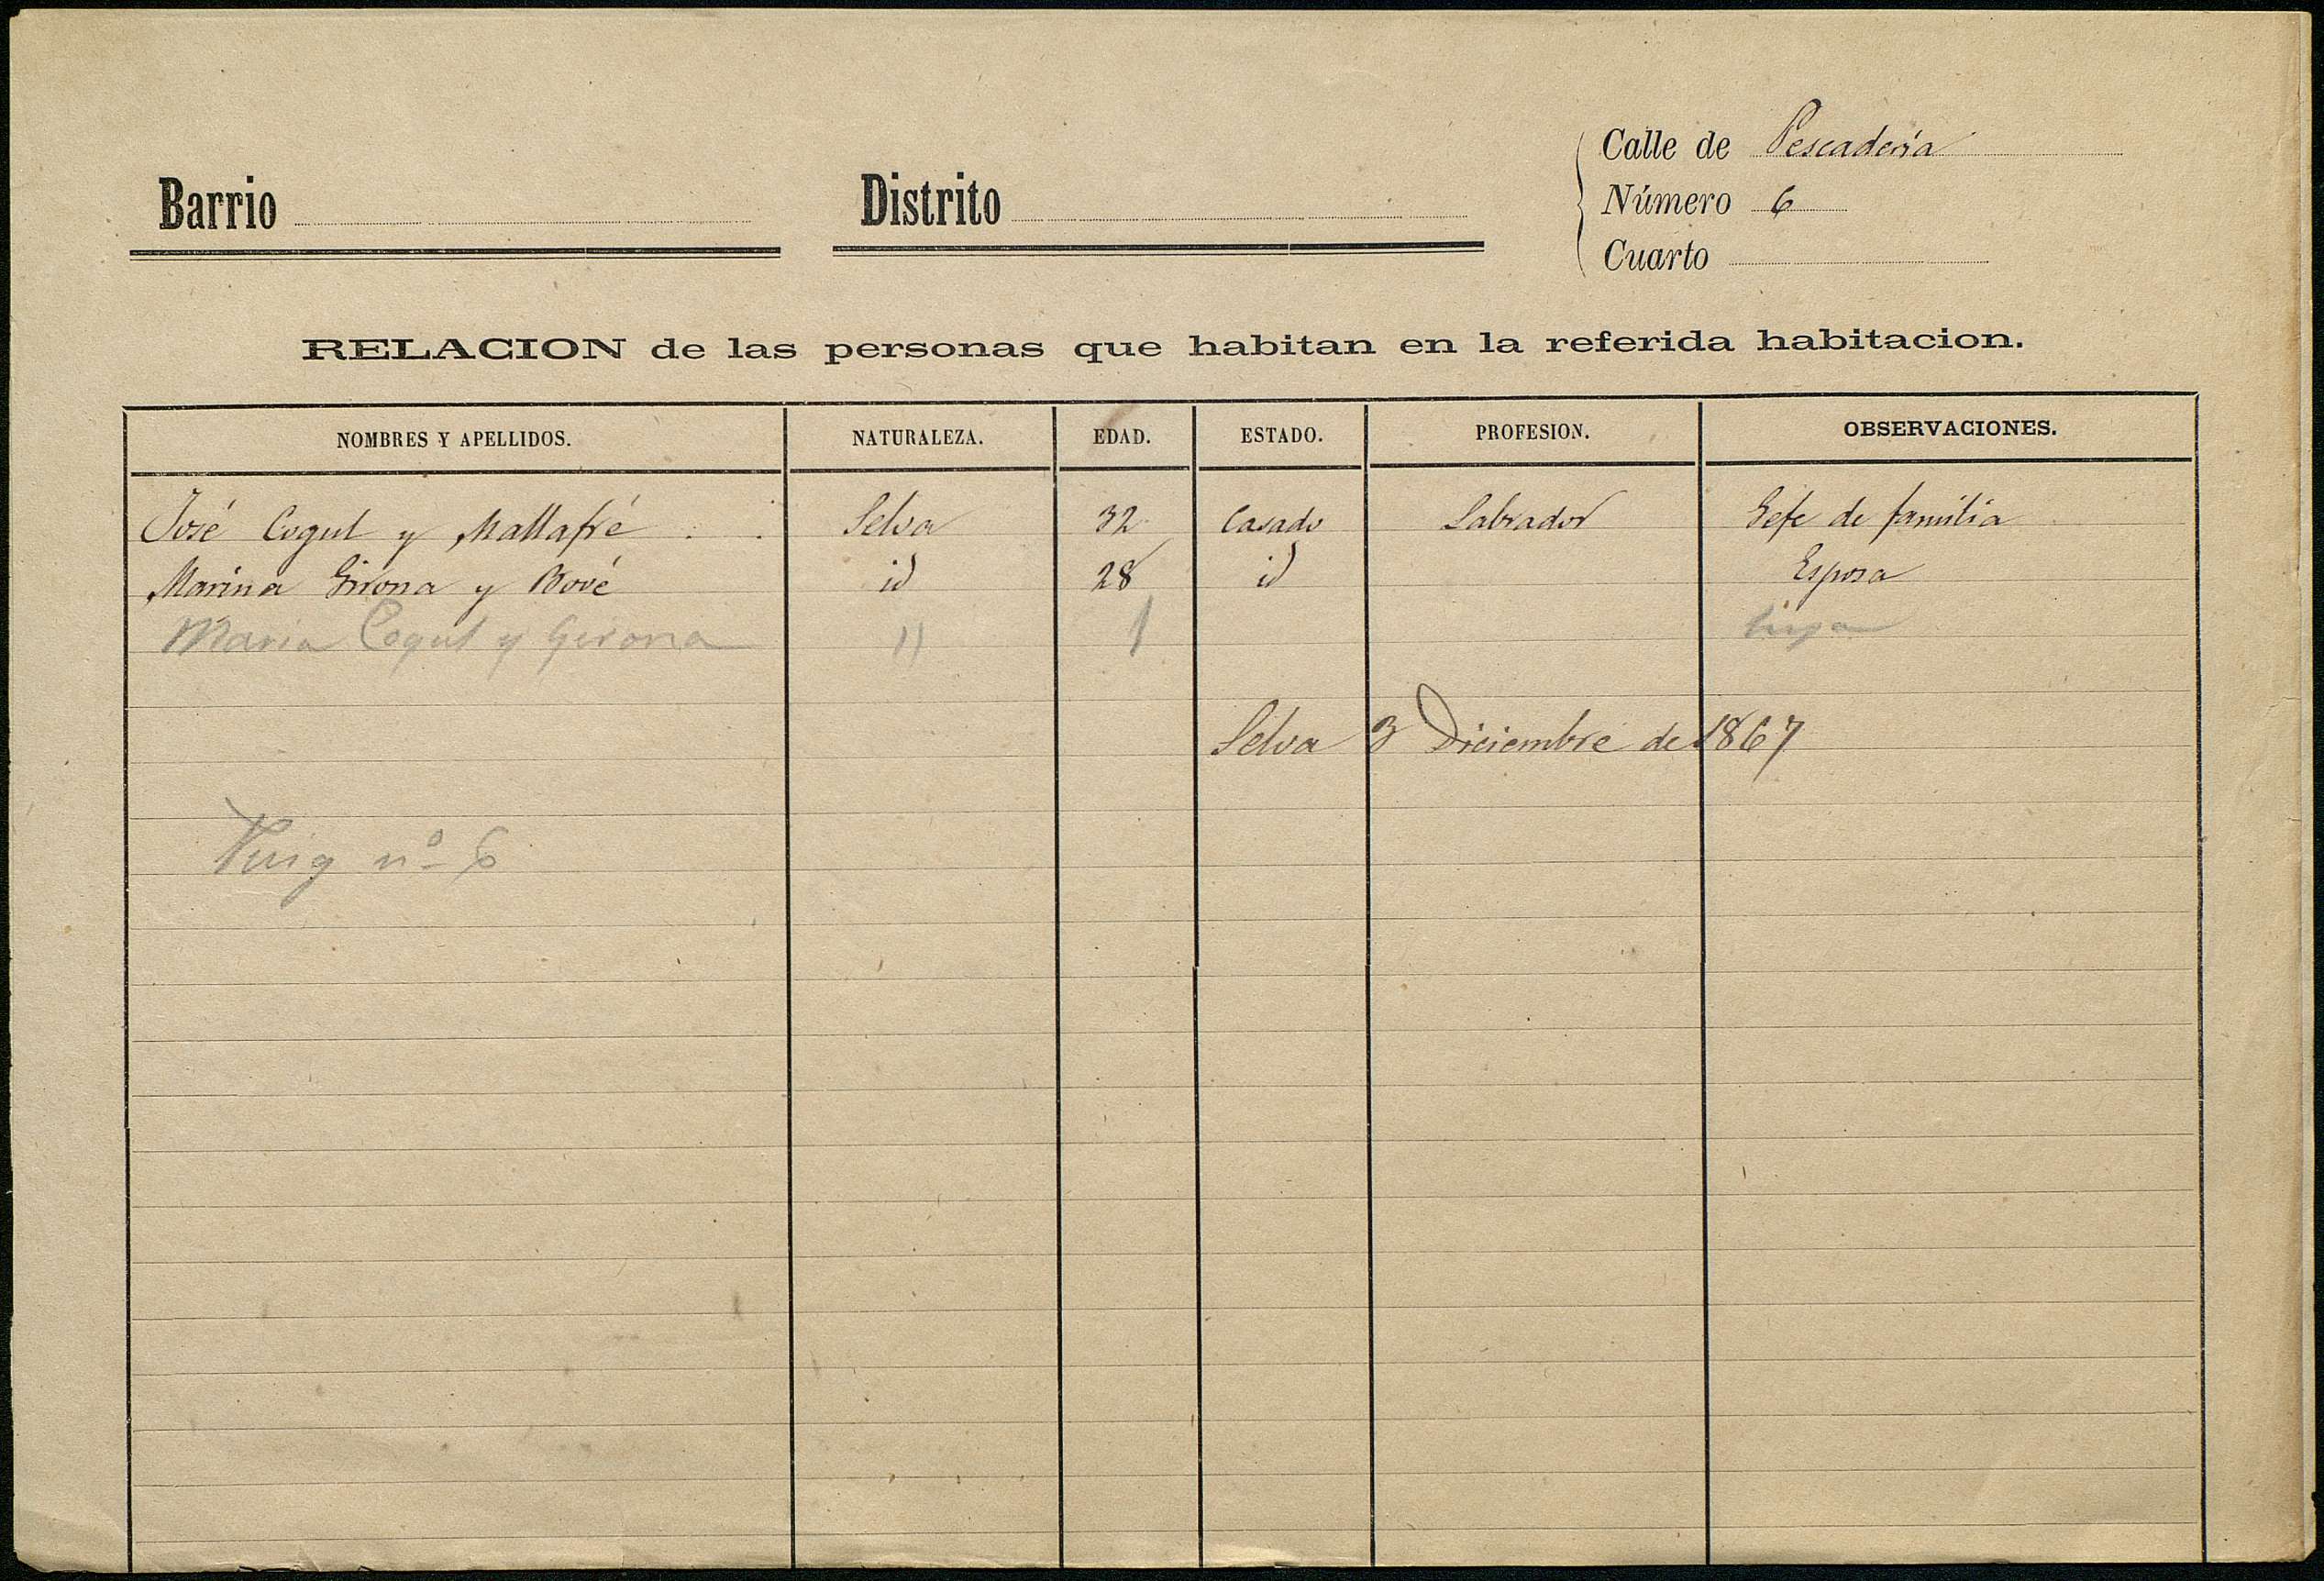 Calle de Pescadería
Barrio
Distrito
Número 6
Cuarto
RELACION de las personas que habitan en la referida habitacion.
NOMBRES Y APELLIDOS. NATURALEZA. EDAD. ESTADO. PROFESION. OBSERVACIONES.
José Cogul y Mallafré Selva 32 Casado Labrador Gefe de familia
Marina Girona y Bové id 28 id Esposa
Maria Cogul y Girona " 1 hija
Selva 3 Diciembre de 1867
Puig nº 6